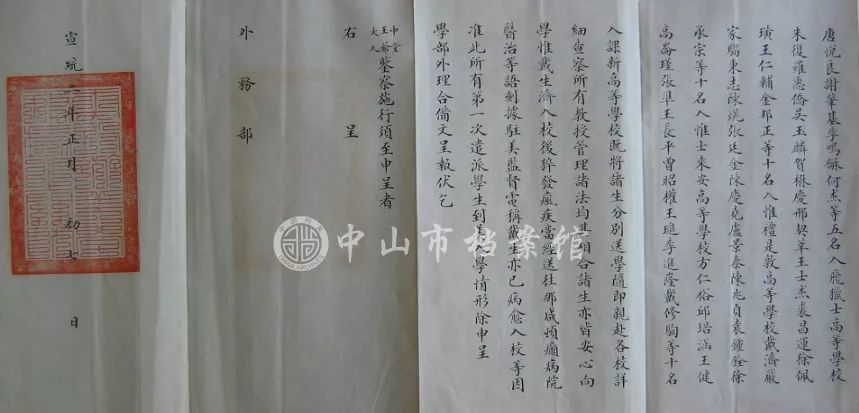 唐悅良謝肇基李鳴龢何杰等五名入飛獵士高等學校
朱復羅惠僑吳玉麟賀楙慶邢契莘王士杰裘昌運徐佩
璜王仁輔金邦正等十名入惟禮是敦高等學校戴濟嚴
家騶秉志陳熀張廷金陳慶堯盧景泰陳兆貞袁鐘銓徐
承宗等十名入惟士來安高等學校方仁裕邱培涵王健
高崙瑾張準王長平曾昭權王璡李進隆戴修騊等十名
入課新高等學校既將諸生分別送學隨即親赴各校詳
細查察所有教授管理諸法均甚相合諸生亦皆安心向
學惟戴生濟入校後猝發瘋疾當經送杜那咸頓癲病院
醫治等語刻據駐美監督電稱戴生亦已病愈入校等因
准此所有第一次遣派學生到美入學情形除申呈
學部外理合備文呈報伏乞
中堂
王爺鑒察施行須至申呈者
大人
右呈
外務部
宣統二年正月初七日
中山市档案馆